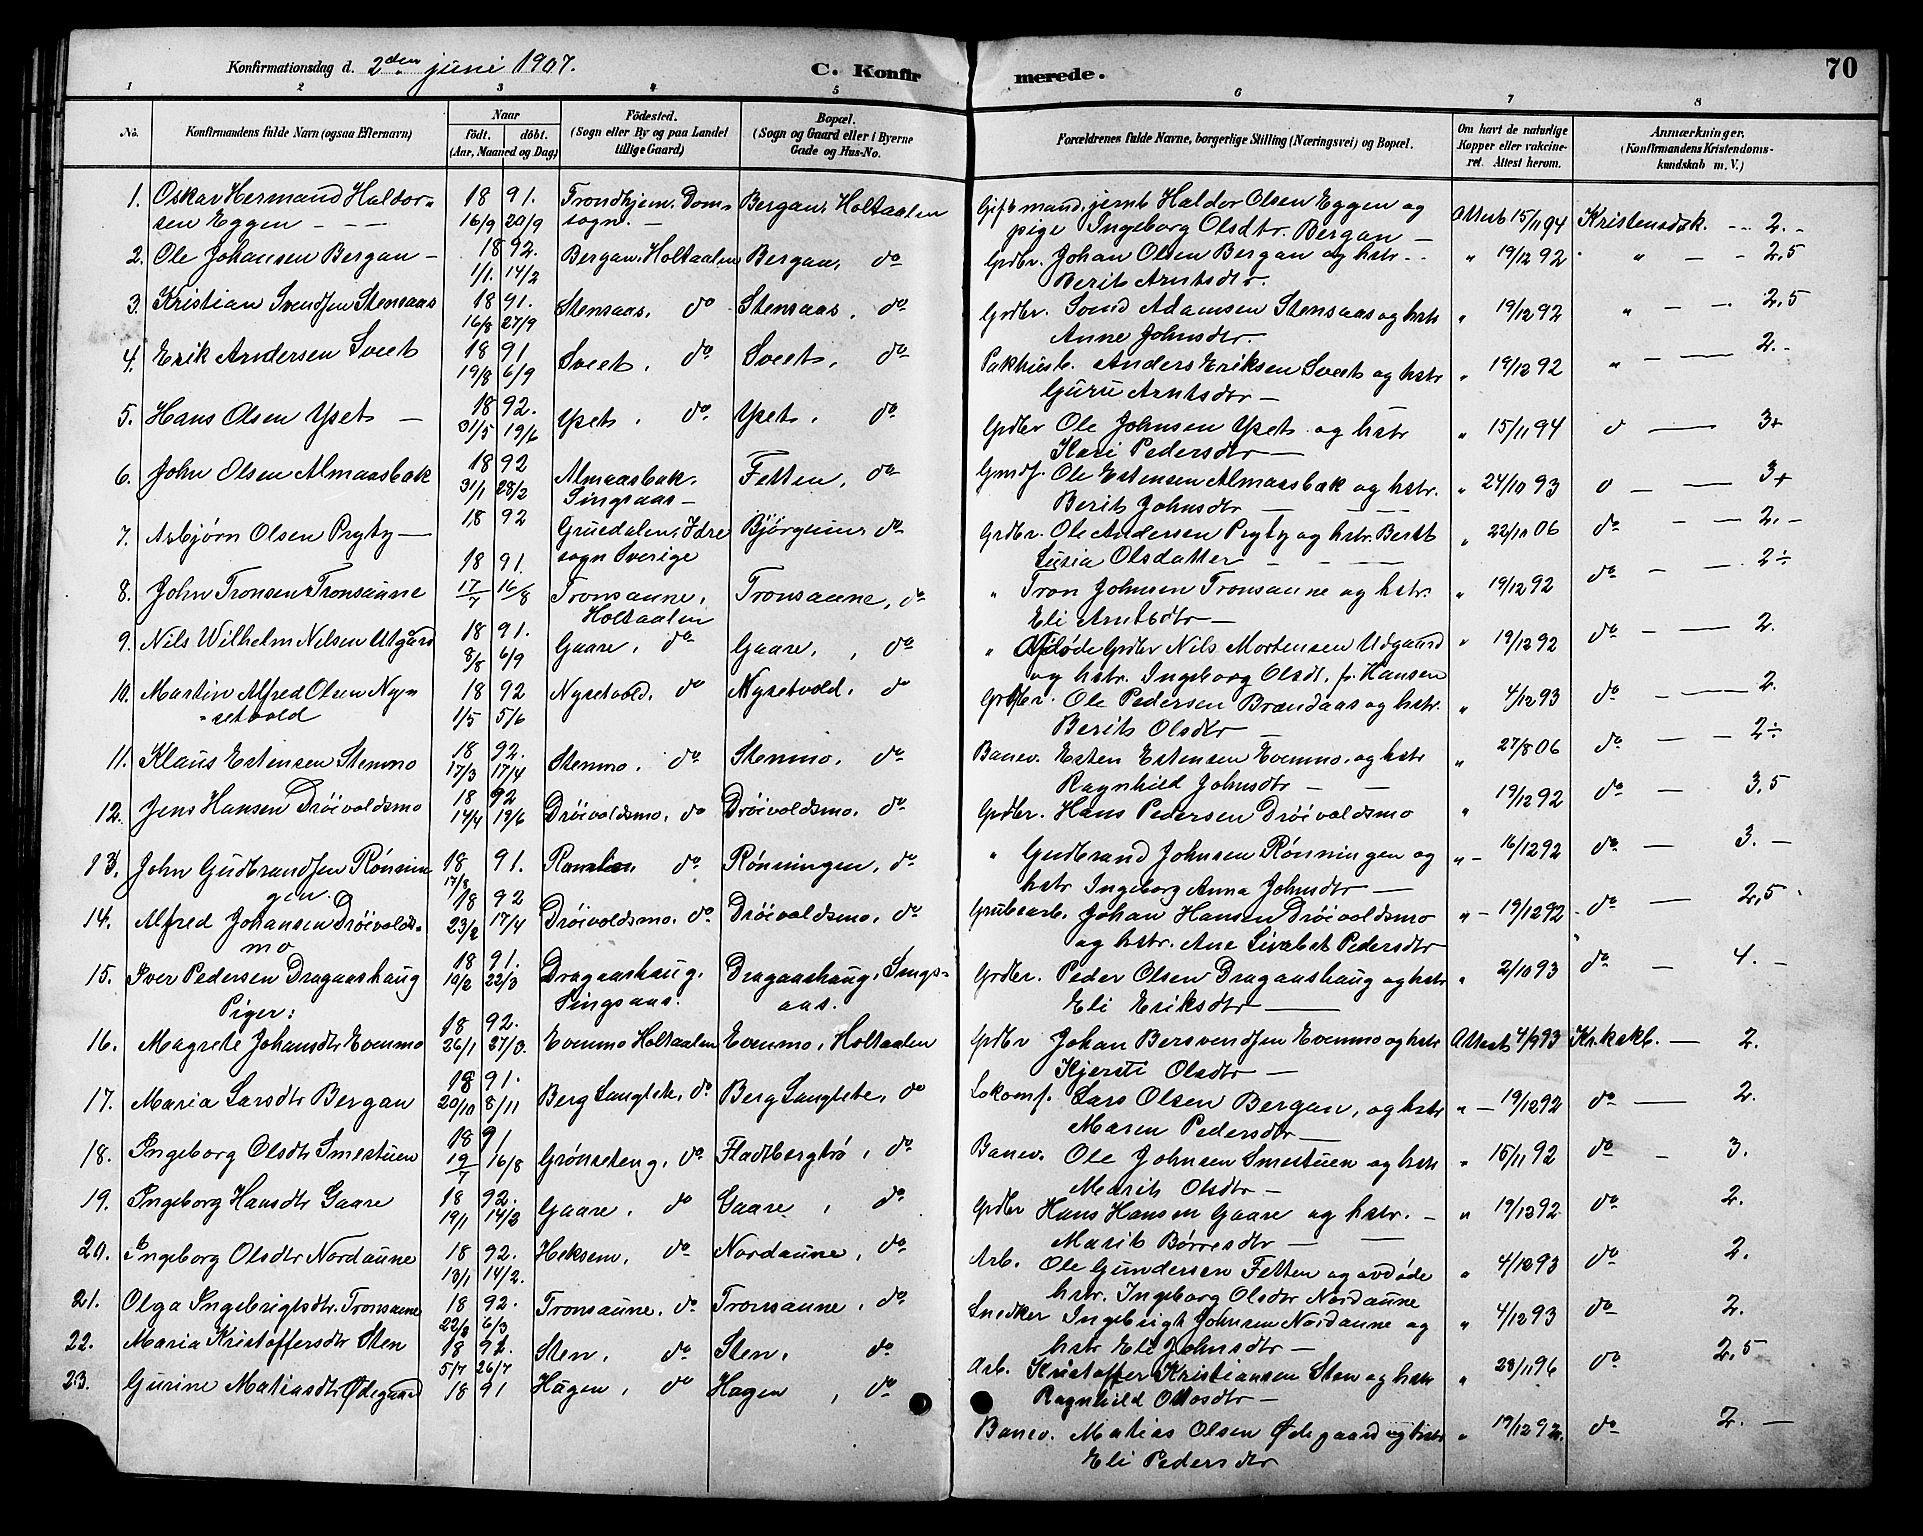 Konfirmationsdag d. 2den juni 1907.
C. Konfirmerede.
70
1 2 3 4 5 6 7 8
No. Konfirmandens fulde Navn (ogsaa Efternavn) Naar født. døbt. (Aar, Maaned og Dag) Fødested. (Sogn eller By og paa Landet tillige Gaard) Bopæl. (Sogn og Gaard eller i Byerne Gade og Hus-No. Forældrenes fulde Navne, borgerlige Stilling (Næringsvei) og Bopæl. Om havt de naturlige Kopper eller vakcineret. Attest herom. Anmærkninger. (Konfirmandens Kristendomskundskab m. V.)
1. Oskar Hermand Haldor- 18 91. Trondhjem. Dom- Bergan, Holtaalen Gift mand, jernb Haldor Olsen Eggen og Attest 15/11 94 Kristensdsk. -- 2.-
sen Eggen - - - 16/9 20/9 sogn. - pige Ingeborg Olsdtr. Bergan -
2. Ole Johansen Bergan - 18 92. Bergan, Holtaalen Bergan, do Grdbr. Johan Olsen Bergan og hstr. - " 19/12 92 " - - 2,5
1/1. 14/2 Berit Arntsdtr.
3. Kristian Svendsen Stensaas 18 91. Stensaas, do Stensaas, do Grdbr. Svend Adamsen Stensaas og hstr " 19/12 92 " - -. 2,5
16/8 27/9 Anne Johnsdtr.
4. Erik Andersen Sveet 18 91 Sveet, do Sveet, do Pakhusb. Anders Eriksen Sveet og hstr " 19/12 92 " - - 2.-
19/8 6/9 Guru Arntsdtr -
5. Hans Olsen Yset - 18 92. Yset, do Yset, do Grdbr Ole Johnsen Yset og hstr " 15/11 94 o - 3+
31/5 19/6 Kari Pedersdtr -
6. John Olsen Almaasbak 18 92 Almaasbak. Fetten, do Ole Estensen Almaasbak og hstr. " 24/10 93 o - - 3+
31/1 28/2 Singsaas - Berit Johnsdtr - - -
7. Asbjørn Olsen Prytz - 18 92 Gruedalen, Idre do Grdbr. Ole Andersen og hstr. Berit " 22/10 06 do - - 2.-
sogn Sverige Lusia Olsdatter - - -
8. John Tronsen Tronsaune 18 91. Tronsaune, Tronsaune, do " Tron Johnsen Tronsaune og hstr. " 19/12 92 do - - 2÷
17/7 16/8 Holtaalen Eli Arntsdtr -
9. Nils Wilhelm Nilsen Utgård 18 91. Gaare, do Gaare, , do " Afdøde Grdbr Nils Mortensen Udgaard " 19/12 92 do - - 2.
8/8 6/9 og hstr. Ingeborg Olsdt. f. Hansen
10. Martin Alfred Olsen Ny- 18 92 Nysetvold, do Nysetvold, do Grdbr. Ole Pedersen Brændaas og hstr. " 4/12 93 do - - 2.
-setvold 1/5 5/6 Berit Olsdtr -
11. Klaus Estensen Stenmo 18 92. Stenmo, do Stenmo, do Banev. Esten Estensen Evenmo, og hstr " 27/8 06 do - - 2÷
17/3 17/4 Ragnhild Johnsdtr - -
12. Jens Hansen Drøivoldsmo 18 92 Drøivoldsmo, do Drøivoldsmo, do Grdbr. Hans Pedersen Drøivoldsmo " 19/12 92 do - 3,5
14/4 19/6
13. John Gudbrandsen Rønnin- 18 91. do Rønningen, do " Gudbrand Johnsen Rønningen og "- 16/12 92 do - 3. -
gen. hstr Ingeborg Anna Johnsdtr -
14. Alfred Johansen Drøivolds- 18 92 Drøivoldsmo, do Drøivoldsmo, do Grubearb. Johan Hansen Drøivoldsmo "- 19/12 92 do - 2,5
mo 23/2 17/4 og hstr. Ane Livebet Pedersdtr
15. Iver Pedersen Dragaashaug 18 91. Dragaashaug, Dragaashaug, Sings- Grdbr. Peder Olsen Dragaashaug og hstr " 2/10 93 do - 4. -
10/2 22/3 Singsaas. aas. Eli Eriksdtr -
Piger:
16. Magrete Johansdtr Evenmo 18 92. Evenmo Holtaalen Evenmo, Holtaalen Grdbr Johan Bersvendsen Evenmo og hstr Attest 4/9 93 Kr.kskb. - 2.
26/1 27/3. Kjersti Olsdtr -
17. Maria Larsdtr Bergan 18 91. Berg Langlete, do Berg Langlete, do Lokomf. Lars Olsen Bergan, og hstr "- 19/12 92 do - 2.
20/10 8/11 Maren Pedersdtr -
18. Ingeborg Olsdtr Smestuen 18 91 Grønseteng, do Fladbergtrø, do Banev. Ole Johnsen Smestuen og hstr " 15/11 92 do - 3.
19/7 16/8 Marit Olsdtr -
19. Ingeborg Hansdtr Gaare 18 92. Gaare, do Gaare, do Grdbr Hans Hansen Gaare og hstr. - " 19/12 92 do 2.
19/1 14/2 Marit Børresdtr - -
20. Ingeborg Olsdtr Nordaune 18 92. Heksem, do Nordaune, do Arb. Ole Gundersen Fetten og avdøde " 4/12 93 do 2.
13/1 14/2. hstr. Ingeborg Olsdtr Nordaune
21. Olga Ingebrigtsdtr. Tronsaune 18 92. Tronsaune, do Tronsaune, do Snedker Ingebrigt Johnsen Nordaune og " 4/12 93 do 2.
22/2 6/3 hstr Eli Johnsdtr -
22. Maria Kristoffersdtr Sten 18 92. Sten, do Sten, do Arb. Kristoffer Kristiansen Sten og hstr " 28/11 96 do 2,5
5/7 26/7 Ragnhild Olsdtr -
23. Gurine Matiasdtr Ødegaard 18 91 Hagen, do Hagen, do Banev. Matias Olsen Ødegaard og hstr " 19/12 92. do 2. -
Eli Pedersdtr